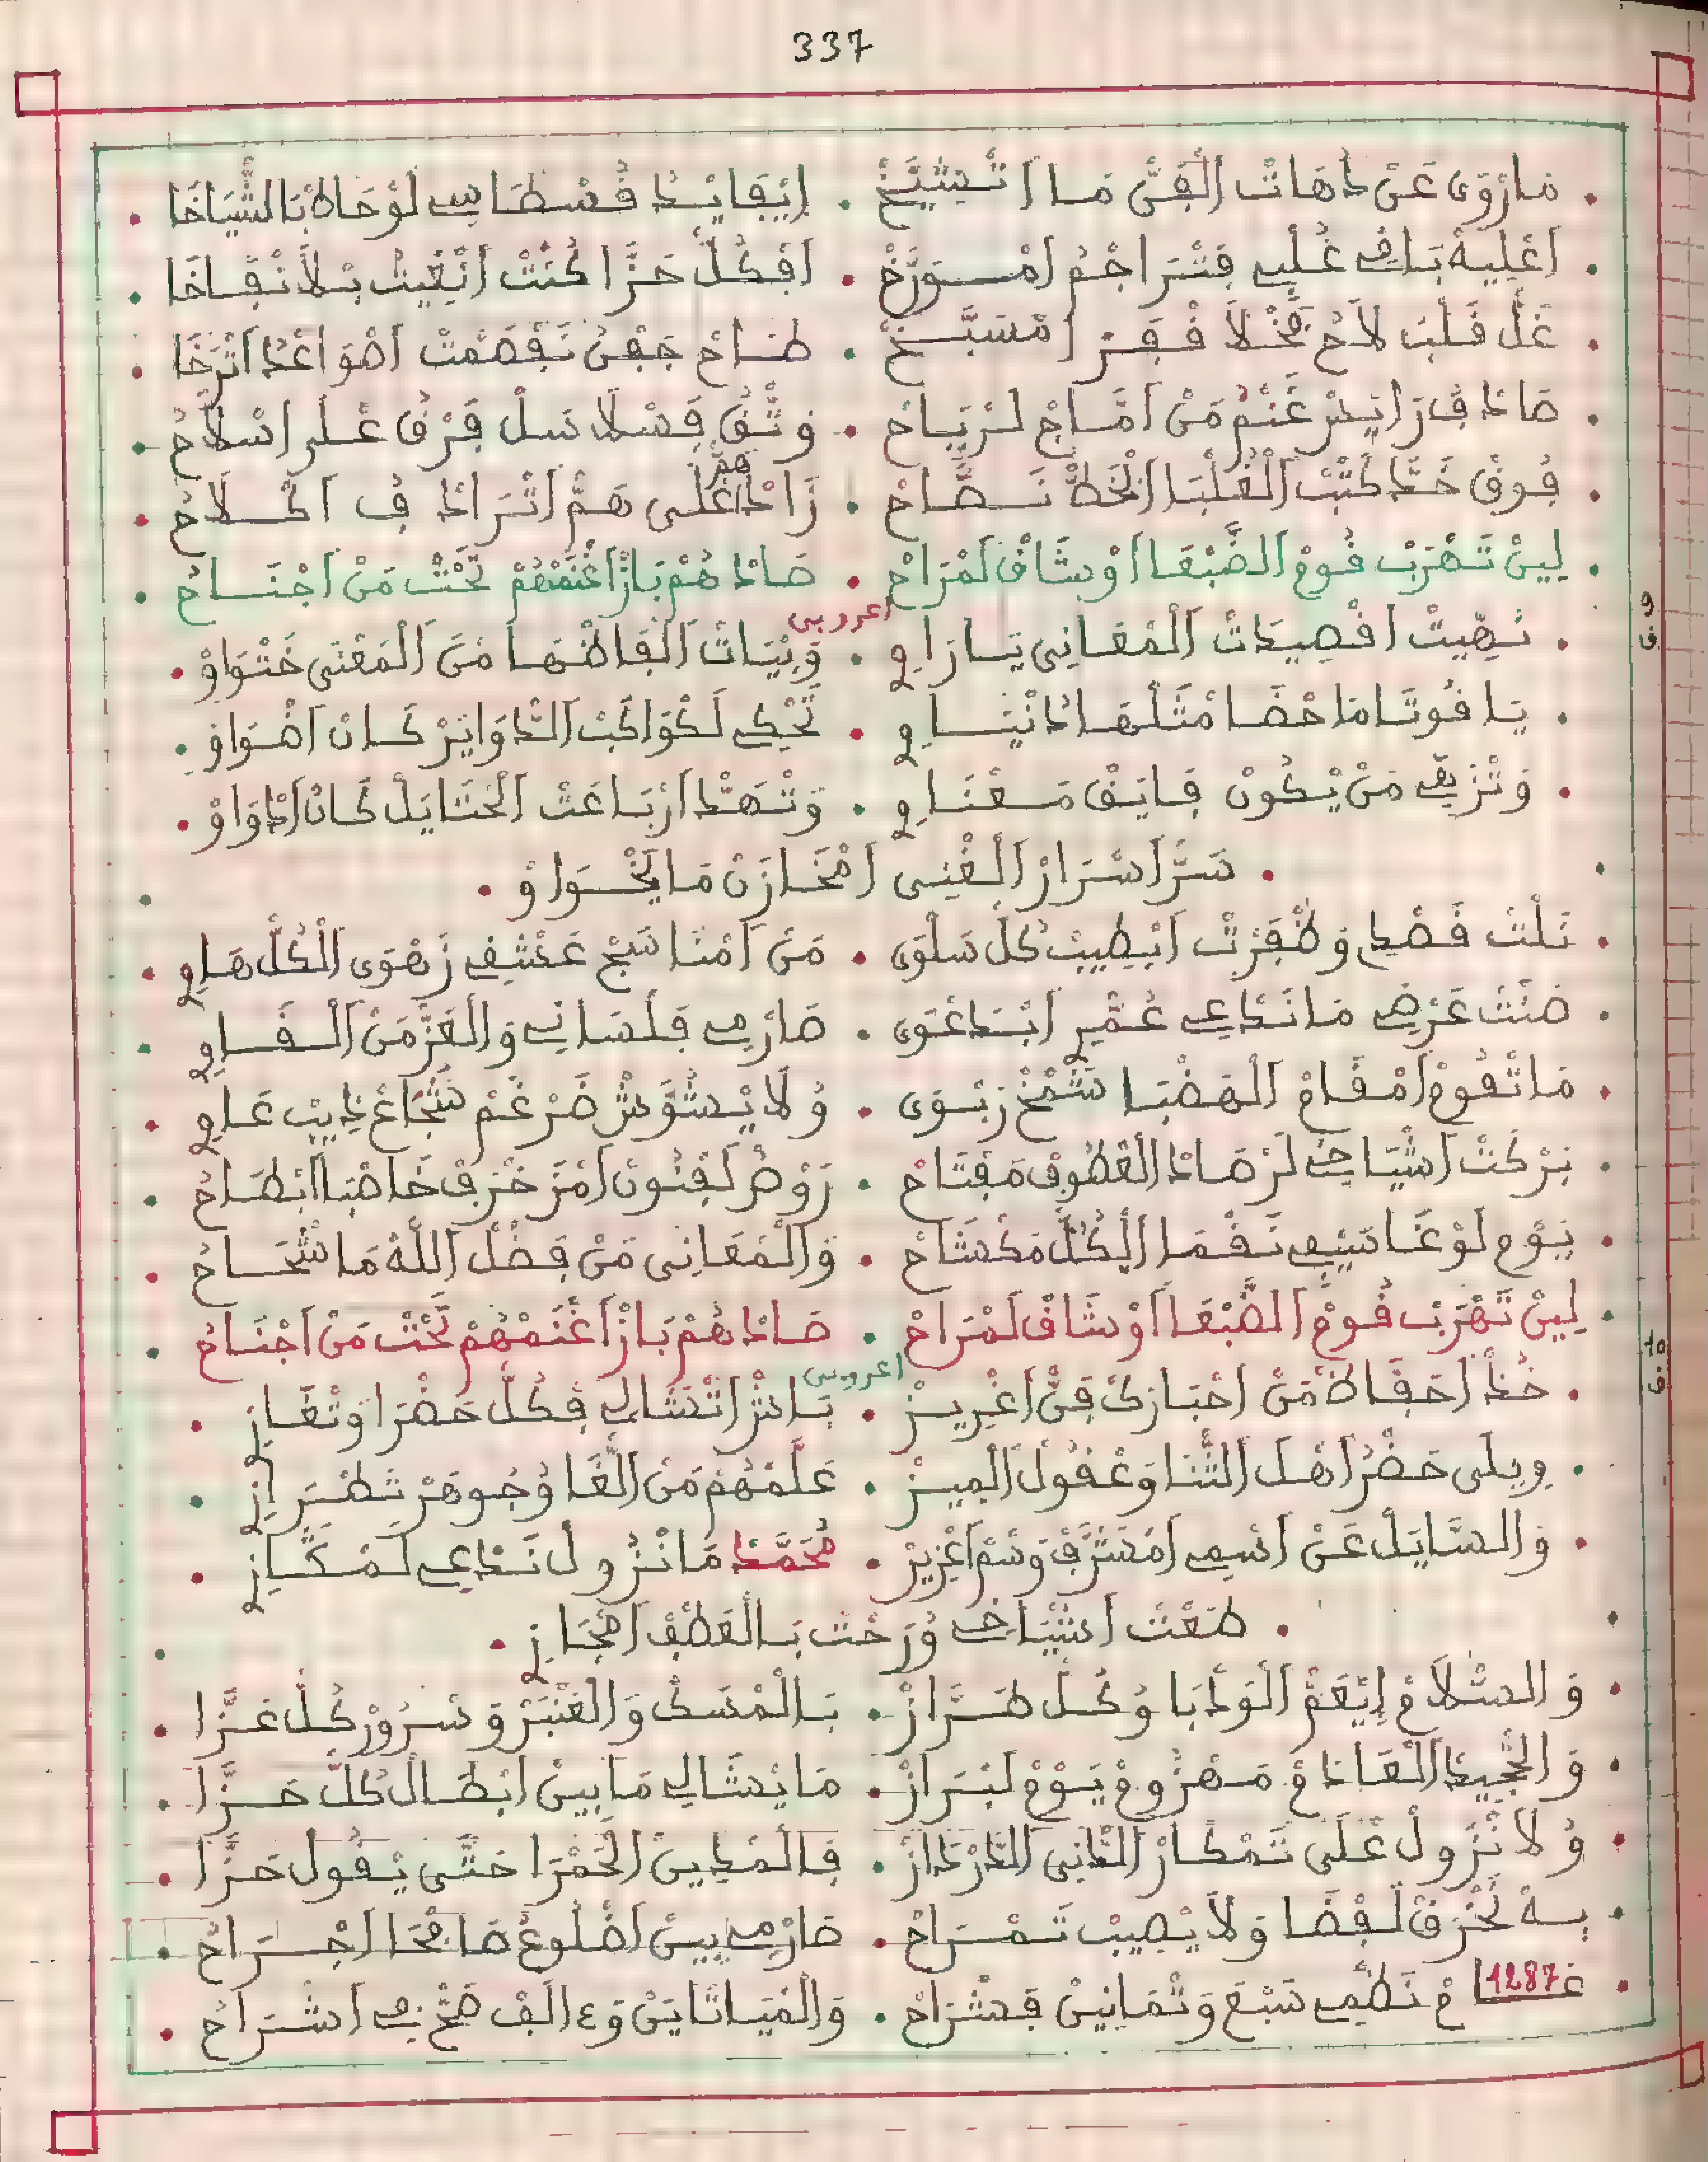 337
مَارْوَى عَنْ دَهَاتْ الْفَنّْ مَا اتْشَيَّخْ . إِيْفَايْدْ قُسْطَاسِي لَوْحَادْ بَالشّْيَاخَا
اعْلِيهْ بَاقِي غُلْبِي فَتْرَاجُمْ امْسَوَّرَخْ . افْكُلّْ حَزَّا كُنْتْ انْغِيتْ بْلَانْفَاخَا
غَلّْ قَلْبْ لَاحْ فَقْرْ امْسَبَّخْ . طَاحْ جَفْنْ
صَادْ مَنْ امَّاجْ لَرْيَاحْ . وَثّْقُ فَسْلَاسَلْ فَرْقُ عْلَى اسْلَاحُ
فُوقْ خَدّْ كَتّْبْ الْغُلْبَا الْخَطّْ نَصَّاحْ . زَادْ عْلَى هَمّْ اتْرَادْ فِ اكْلَاحُ
لِينْ تَهْرَبْ قُومْ الضَّبْعَا اوْشَافْ لَمْرَاحْ . صَادْهُمْ بَازْ اغْنَمْهُمْ تَحْتْ مَنْ اجْنَاحُ
اعروبي
9
ف
نَهِّيتْ اقْصِيدَتْ الْمْعَانِي يَارَاوِي . وَبْيَاتْ الْفَاظْهَا مَنْ الْمَعْنَى خَتْوَاوْ
يَاقُوتَا مَاحْضَا مْثَلْهَا دَانْيَاوِي . تَحْكِي لَكْوَاكَبْ الدّْوَايَرْ كَانْ اضْوَاوْ
وَتْزَيَّفْ مَنْ يْكُونْ فَايَقْ مَعْنَاوِي . وَتْهَدّْ ارْبَاعَتْ الْحْتَايَلْ كَانْ ادْوَاوْ
سَرّْ اسْرَارْ الْغْنِي امْخَازَنْ مَايَخْوَاوْ
نَلْتْ قَصْدِي وَظْفَرْتْ ابْطِيبْ كُلّْ سَلْوَى . مَنْ امْتَاسَجْ عَشْقِي زَهْوَى الْكُلّْ هَاوِي
صَنْتْ عَرْضِي مَانَدَّاعِي عُمْرِي ابْدَعْوَى . صَارْمِي فَلْسَانِي وَالْعَزّْ مَنْ الْقَاوِي
مَاتْقُومْ امْقَامْ الْهَضْبَا شَمَّخْ رَبْوَى . وُلَا يْشَوَّشْ ضَرْغَمْ شَجَاعْ ذِيبْ عَاوِي
بَرْكَتْ اشْيَاخِي لَرْصَادْ الْعْطُوفْ مَفْتَاحْ . رَوْضْ لَفْنُونْ امْزَخْرَفْ خَاصْبَا ابْطَاحُ
يَوْمْ لَوْغَا سَيْفِي نَقْمَا الْكُلّْ مَكْشَاحْ . وَالْمْعَانِي مَنْ فَضْلْ اللَّهْ مَاشْحَاحُ
لِينْ تَهْرَبْ قُومْ الضَّبْعَا اوْشَافْ لَمْرَاحْ . صَادْهُمْ بَازْ اغْنَمْهُمْ تَحْتْ مَنْ اجْنَاحُ
اعروبي
10
ف
خُذْ احَفَّاظْ مَنْ احْبَارَكْ فَنّْ اغْرِيزْ . بَاشْ اتْشَالِي فْكُلّْ حَضْرَا وَتْغَازِي
وِيلَى حَضْرُ اهْلْ الثّْنَا وَعْقُولْ الْمِيزْ . عَلَّمْهُمْ مَنْ الْغَا وُجُوهَرْ تَطْرَازِي
وَالسَّايَلْ عَنْ اسْمِي امْشَرَّفْ وَسْمْ اعْزِيزْ . مُحَمَّدْ مَانْزُولْ نَدَّاعِي لَمْكَازِي
طَعْتْ اشْيَاخِي وُرَحْتْ بَالْعَطْفْ امْجَازِي
وَالسّْلَامْ إِيْعَمّْ الْوَدْبَا وُكُلّْ طَرَّازْ . بَالْمَسْكْ وَالْعَنْبَرْ وَسْرُورْ كُلّْ عَزَّا
وَالْجْحِيدْ الْعَادَمْ مَهْزُومْ يَوْمْ لَبْرَازْ . مَايْشَالِي مَابِينْ ابْطَالْ كُلّْ حَزَّا
وُلَا نْزُولْ عْلَى تَمْكَارْ الدّْنِي الدَّرْدَازْ . فَالْمْدِينْ الْحَمْرَا حَتَّى يْقُولْ حَزَّا
بِهْ نَخْرَقْ لَفْضَا وَلَا يْصِيبْ تَمْرَاحْ . صَارْمِي بِينْ اضْلُوعُ صَامْحَا اجْرَاحُ
1287
عَامْ نَظْمِي سَبْعْ وَثْمَانِينْ فَشْرَاحْ . وَالْمْيَاتَايَنْ وَءَالَفْ اشْرَاحُ